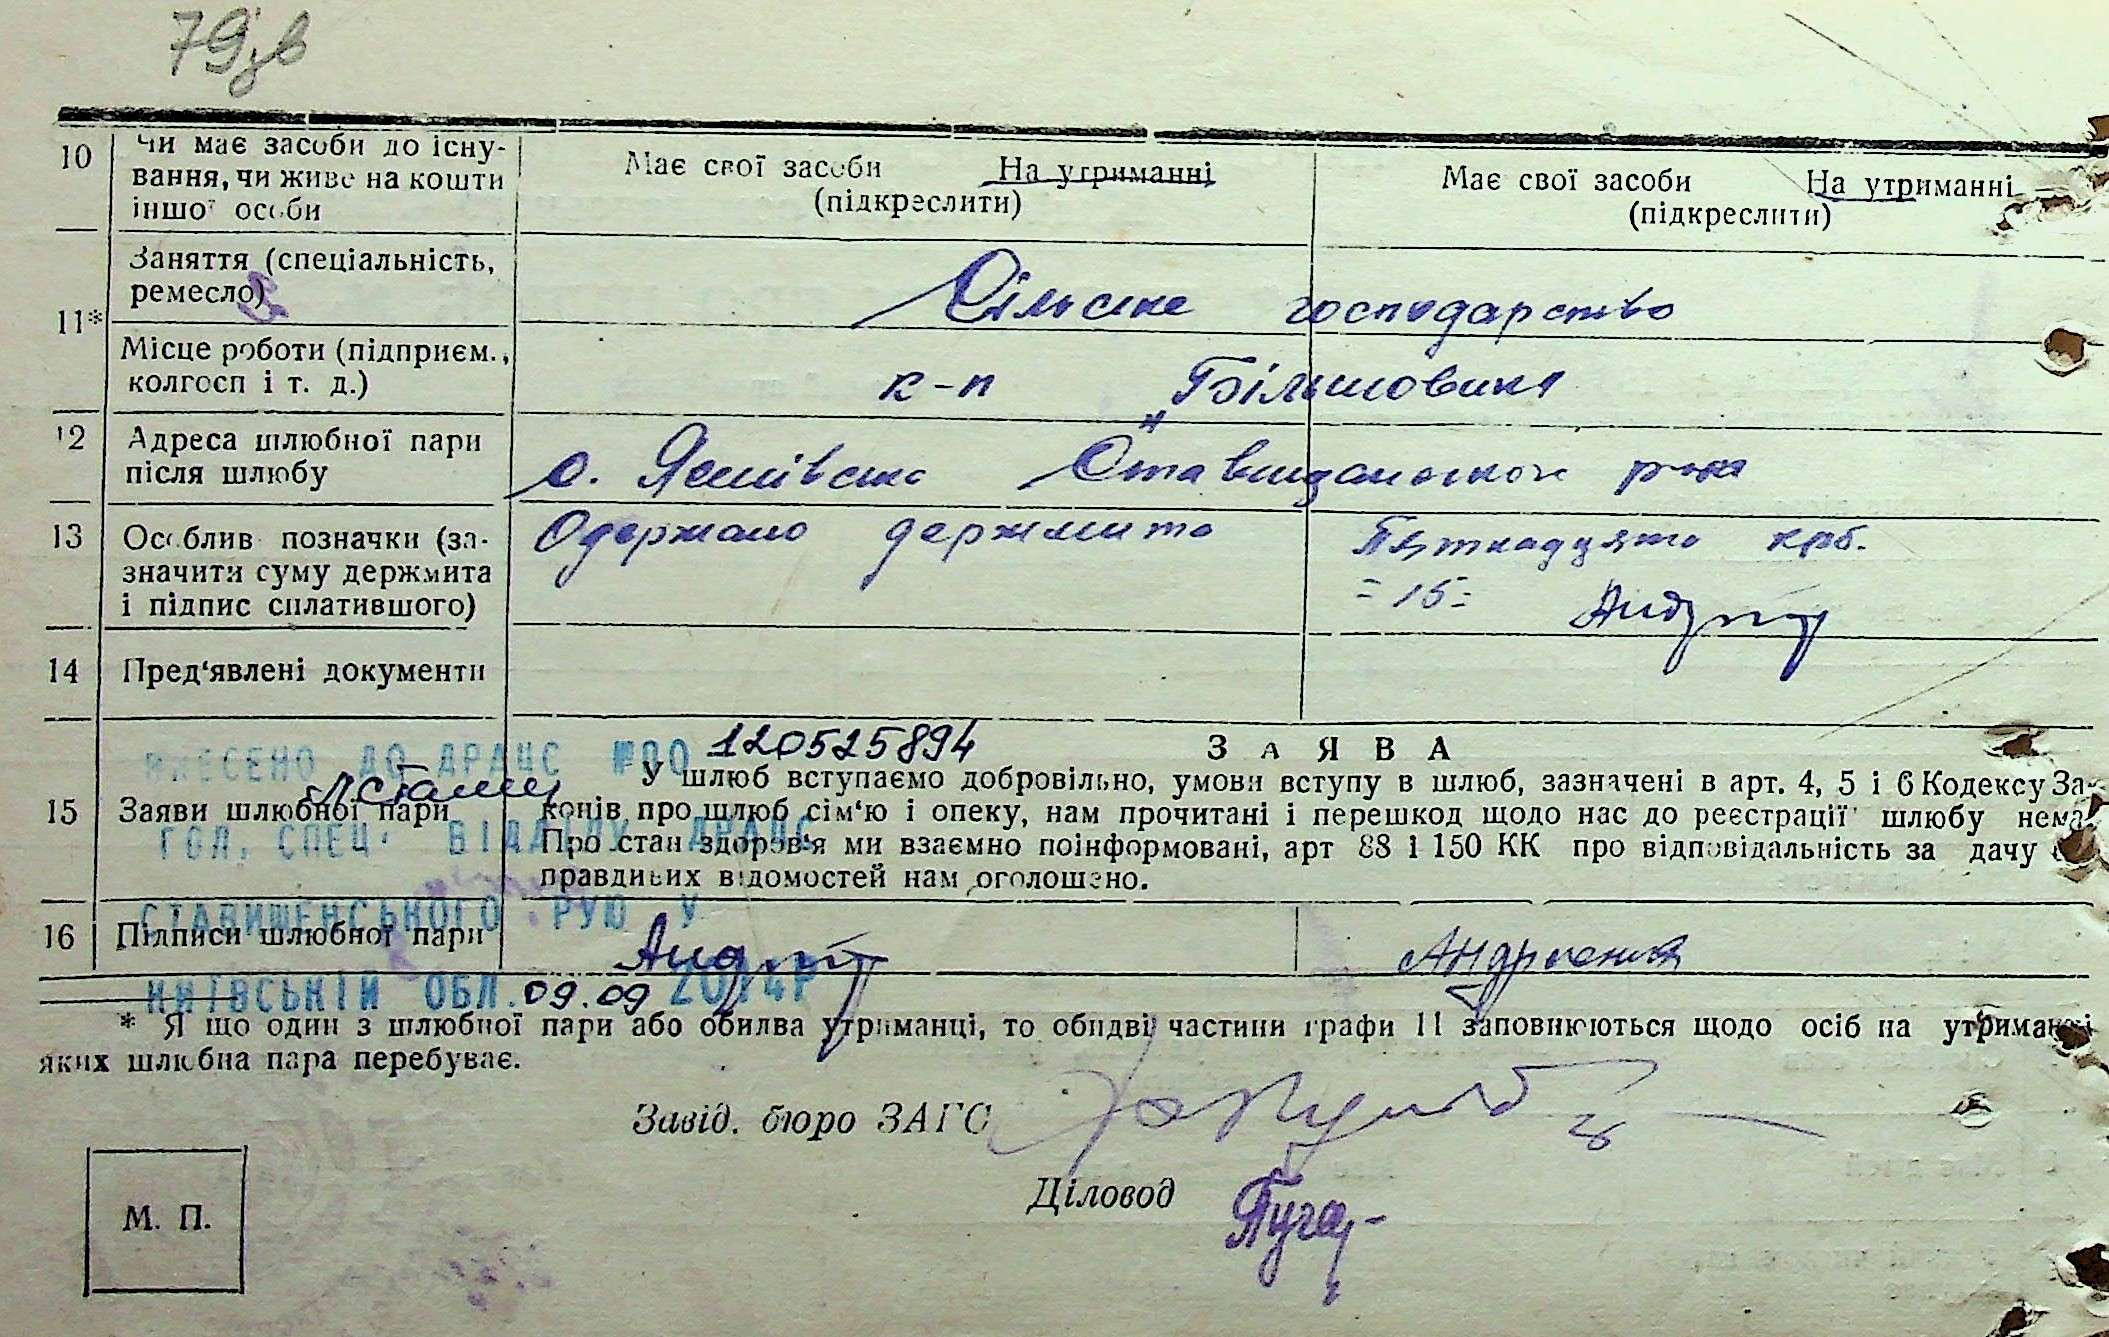 79зв
10 Чи має засоби до існу-
вання, чи живе на кошти
іншої особи
Має свої засоби На утриманні
(підкреслити)
Має свої засоби На утриманні
(підкреслити)
11* Заняття (спеціальність,
ремесло)
Сільське господарство
Місце роботи (підприєм.,
колгосп і т. д.)
к-п "Більшовик"
12 Адреса шлюбної пари
після шлюбу
с. Ставищанського р-на
13 Особлив позначки (за-
значити суму держмита
і підпис сплатившого)
Одержано держмита
Пятнадцять крб.
= 15 =
14 Пред‘явлені документи
ВНЕСЕНО ДО ДРАЦС №00 120525894
ГОЛ. СПЕЦ. ВІДДІЛУ ДРАЦС
СТАВИЩЕНСЬКОГО РУЮ У
КИЇВСЬКІЙ ОБЛ. 09.09 2014Р
15 Заяви шлюбної пари
ЗАЯВА
У шлюб вступаємо добровільно, умови вступу в шлюб, зазначені в арт. 4, 5 і 6 Кодексу За-
конів про шлюб сім‘ю і опеку, нам прочитані і перешкод щодо нас до реєстрації шлюбу нема.
Про стан здоров‘я ми взаємно поінформовані, арт 88 і 150 КК про відповідальність за дачу
правдивих відомостей нам оголошено.
16 Підписи шлюбної пари
* Я що один з шлюбної пари або обидва утриманці, то обидві частини графи 11 заповнюються щодо осіб на утриманні
яких шлюбна пара перебуває.
Завід. бюро ЗАГС
Діловод
М. П.